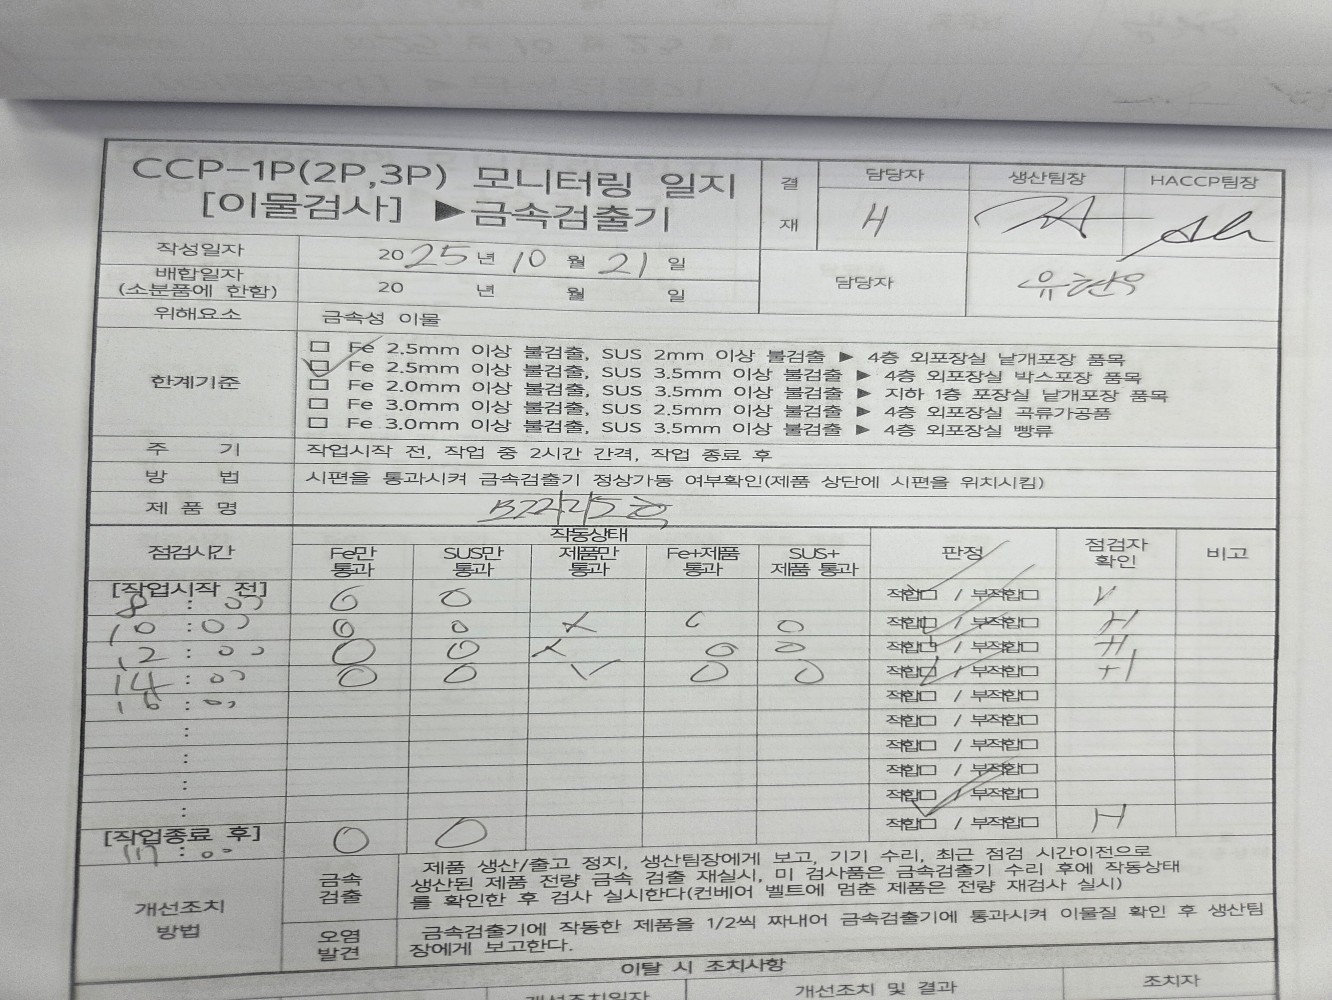 CCP-1P(2P,3P) 모니터링 일지
[이물검사] ▶금속검출기
결재 담당자 생산팀장 HACCP팀장
H
작성일자 2025년 10월 21일
담당자 유현우
배합일자 (소분품에 한함) 20 년 월 일
위해요소 금속성 이물
한계기준
□ Fe 2.5mm 이상 불검출, SUS 2mm 이상 불검출 ▶ 4층 외포장실 낱개포장 품목
□ Fe 2.5mm 이상 불검출, SUS 3.5mm 이상 불검출 ▶ 4층 외포장실 박스포장 품목
□ Fe 2.0mm 이상 불검출, SUS 3.5mm 이상 불검출 ▶ 지하 1층 포장실 낱개포장 품목
□ Fe 3.0mm 이상 불검출, SUS 2.5mm 이상 불검출 ▶ 4층 외포장실 곡류가공품
□ Fe 3.0mm 이상 불검출, SUS 3.5mm 이상 불검출 ▶ 4층 외포장실 빵류
주 기 작업시작 전, 작업 중 2시간 간격, 작업 종료 후
방 법 시편을 통과시켜 금속검출기 정상가동 여부확인(제품 상단에 시편을 위치시킴)
제 품 명
점검시간 작동상태 판정 점검자 확인 비고
Fe만 통과 SUS만 통과 제품만 통과 Fe+제품 통과 SUS+ 제품 통과
[작업시작 전] 8 : 00 O O 적합□ / 부적합□
10 : 00 O O X O O 적합□ / 부적합□ H
12 : 00 O O X O O 적합□ / 부적합□ H
14 : 00 O O O O 적합□ / 부적합□ H
16 : 00 적합□ / 부적합□
: 적합□ / 부적합□
: 적합□ / 부적합□
: 적합□ / 부적합□
: 적합□ / 부적합□
[작업종료 후] : 00 O O 적합□ / 부적합□ H
개선조치 방법
금속 검출
제품 생산/출고 정지, 생산팀장에게 보고, 기기 수리, 최근 점검 시간이전으로
생산된 제품 전량 금속 검출 재실시, 미 검사품은 금속검출기 수리 후에 작동상태
를 확인한 후 검사 실시한다(컨베어 벨트에 멈춘 제품은 전량 재검사 실시)
오염 발견
금속검출기에 작동한 제품을 1/2씩 짜내어 금속검출기에 통과시켜 이물질 확인 후 생산팀
장에게 보고한다.
이탈 시 조치사항
개선조치일자 개선조치 및 결과 조치자